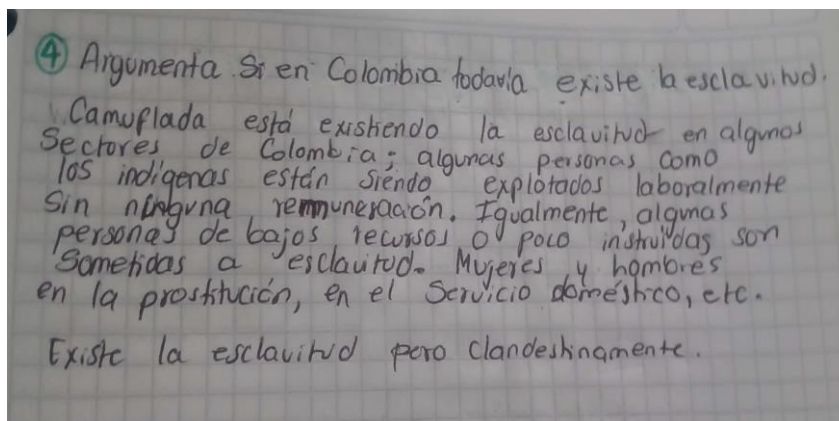 ④ Argumenta si en Colombia todavía existe la esclavitud.
Camuflada está existiendo la esclavitud en algunos
Sectores de Colombia; algunas personas como
los indígenas están siendo explotados laboralmente
Sin ninguna remuneración. Igualmente, algunas
personas de bajos recursos o poco instruidas son
Sometidas a esclavitud. Mujeres y hombres
en la prostitución, en el Servicio doméstico, etc.
Existe la esclavitud pero clandestinamente.